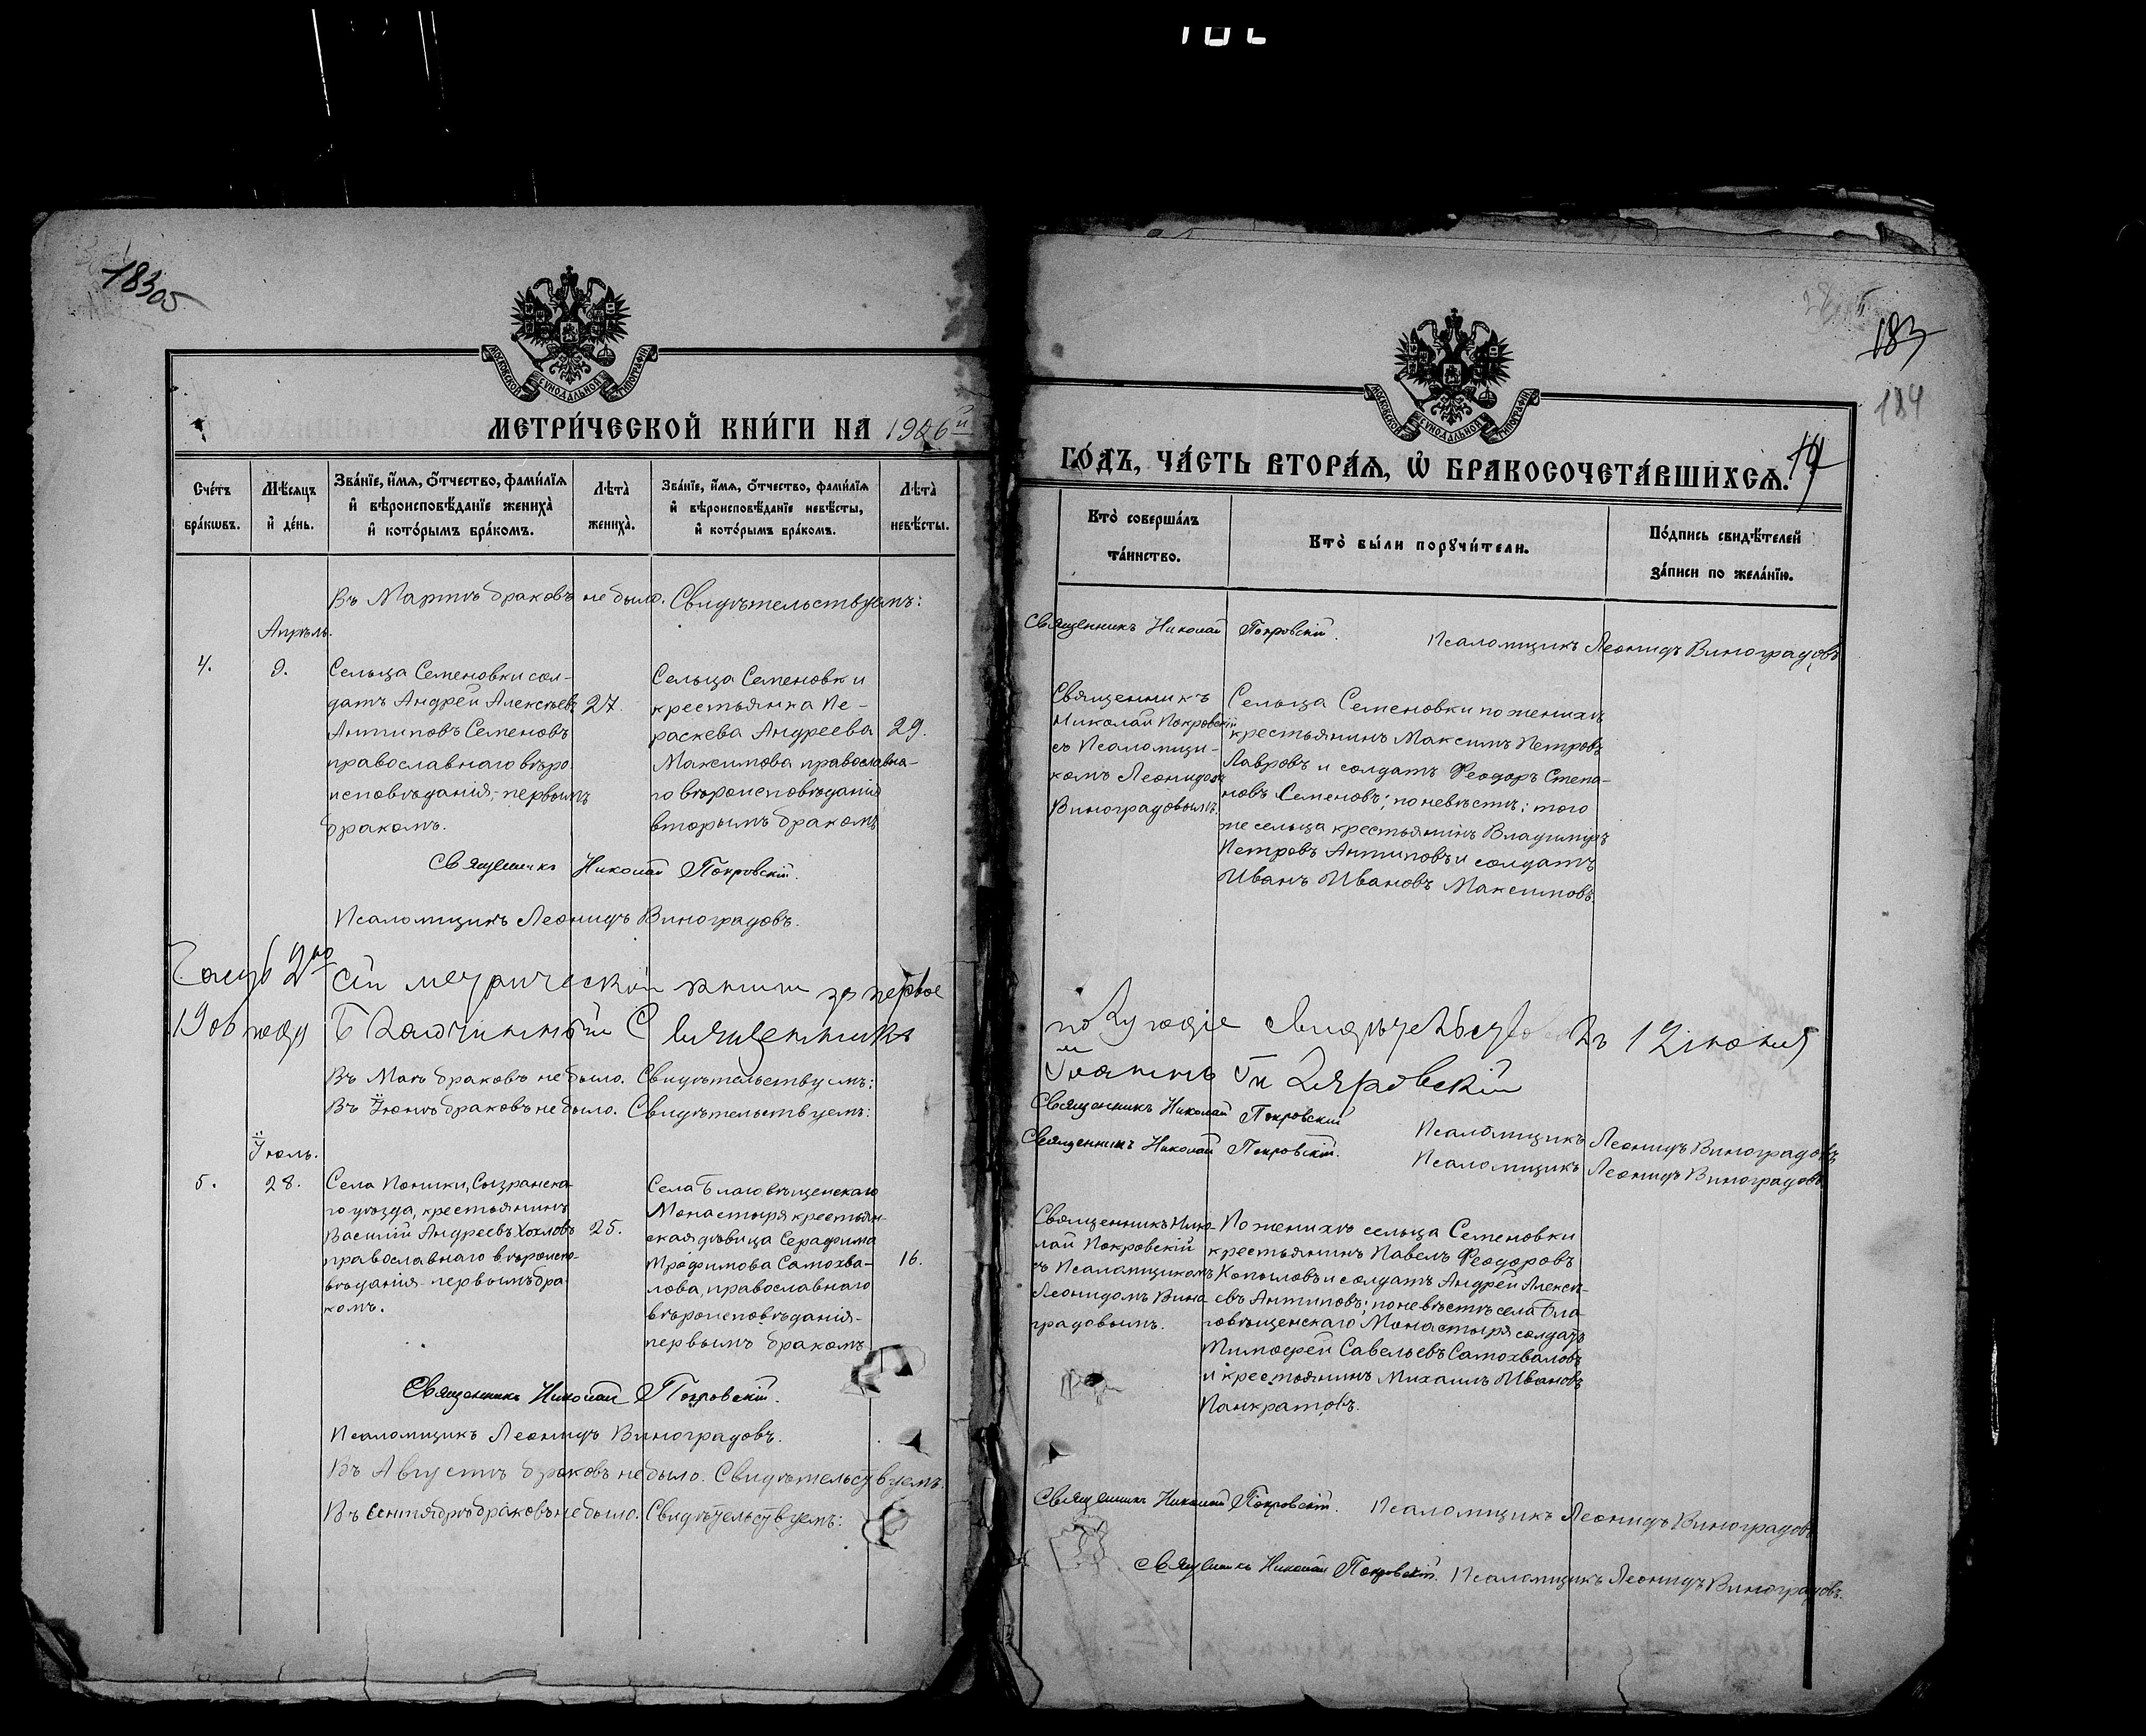 18305
МОСКОВСКОЙ СѴНОДАЛЬНОЙ ТИПОГРАФІИ
МЕТРИ́ЧЕСКОЙ КНИ́ГИ НА 1906й
Сче́тъ бра́кωвъ.
Мѣ́сяцъ и҆ де́нь.
Зва́нїе, и҆́мѧ, ѻ҆́тчество, фами́лїѧ
и҆ вѣроисповѣ́данїе жениха̀
и҆ кото́рымъ бра́комъ.
Лѣта̀ жениха̀.
Зва́нїе, и҆́мѧ, ѻ҆́тчество, фами́лїѧ
и҆ вѣроисповѣ́данїе невѣ́сты,
и҆ кото́рымъ бра́комъ.
Лѣта̀ невѣ́сты.
Въ Мартѣ браковъ не было. Свидѣтельствуемъ:
Апрѣль.
4.
9.
Сельца Семеновки сол-
датъ Андрей Алексѣевъ
Антиповъ Семеновъ
православнаго вѣро-
исповѣданія, первымъ
бракомъ.
27.
Сельца Семеновки
крестьянка Пе-
раскева Андреева
Максимова православна-
го вѣроисповѣданія
вторымъ бракомъ
29.
Священникъ Николай Покровскій.
Псаломщикъ Леонидъ Виноградовъ.
Часть 2ую сей метрической книги за первое
1906 года Благочинный Священникъ
Въ Маѣ браковъ не было. Свидѣтельствуемъ:
Въ Іюнѣ браковъ не было. Свидѣтельствуемъ:
Іюль.
5.
28.
Села Поники, Сызранска-
го уѣзда, крестьянинъ
Василій Андреевъ Хохловъ
православнаго вѣроиспо-
вѣданія - первымъ бра-
комъ.
25.
Села Благовѣщенскаго
Монастыря крестьян-
ская дѣвица Серафима
Трофимова Самохва-
лова, православнаго
вѣроисповѣданія -
первымъ бракомъ
16.
Священникъ Николай Покровскій.
Псаломщикъ Леонидъ Виноградовъ.
Въ Августѣ браковъ не было. Свидѣтельствуемъ.
Въ Сентябрѣ браковъ не было. Свидѣтельствуемъ:
183
184
МОСКОВСКОЙ СѴНОДАЛЬНОЙ ТИПОГРАФІИ
ГО́ДЪ, ЧА́СТЬ ВТОРА́Ѧ, Ѽ БРАКОСОЧЕТА́ВШИХСѦ.
Кто̀ соверша́лъ та́инство.
Кто̀ бы́ли порꙋчи́тели.
По́дпись свидѣ́телей
за́писи по жела́нїю.
Священникъ Николай Покровскій. Псаломщикъ Леонидъ Виноградовъ
Священникъ
Николай Покровскій
съ Псаломщи-
комъ Леонидомъ
Виноградовымъ.
Сельца Семеновки по женихѣ
крестьянинъ Максимъ Петровъ
Лавровъ и солдатъ Феодоръ Степа-
новъ Семеновъ; по невѣстѣ: того
же сельца крестьянинъ Владимиръ
Петровъ Антиповъ и солдатъ
Иванъ Ивановъ Максимовъ.
полугодіе свидѣтельствовалъ 12 іюня
Іоаннъ
Священникъ Николай Покровскій Псаломщикъ Леонидъ Виноградовъ
Священникъ Николай Покровскій. Псаломщикъ Леонидъ Виноградовъ
Священникъ Нико-
лай Покровскій
съ Псаломщикомъ
Леонидомъ Вино-
градовымъ.
По женихѣ сельца Семеновки
крестьянинъ Павелъ Феодоровъ
Копыловъ и солдатъ Андрей Алексѣ-
евъ Антиповъ; по невѣстѣ села Бла-
говѣщенскаго Монастыря солдатъ
Тимофей Савельевъ Самохваловъ
и крестьянинъ Михаилъ Ивановъ
Панкратовъ.
Священникъ Николай Покровскій. Псаломщикъ Леонидъ Виноградовъ
Священникъ Николай Покровскій. Псаломщикъ Леонидъ Виноградовъ.